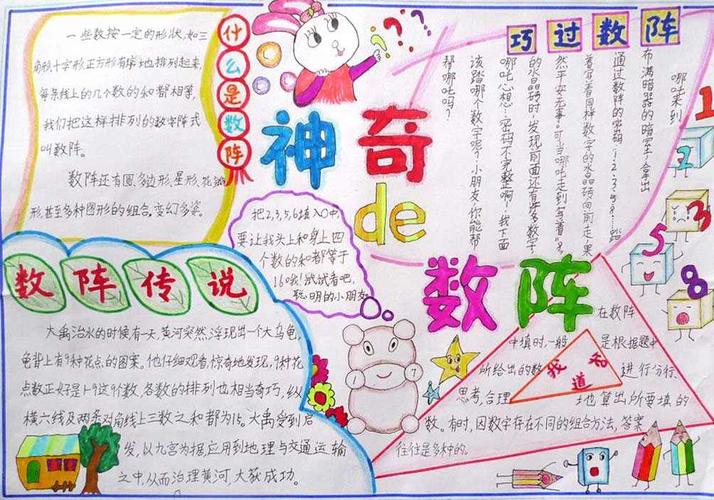 什么是数阵
一些数按一定的形状,如三
角形,十字形,正方形有序地排列起来,
每条线上的几个数的和都相等,
我们把这样排列的数字阵式
叫数阵。
数阵还有圆,多边形,星形,花瓣
形,甚至多种图形的组合,变幻多姿。
神奇
de
数阵
巧过数阵
哪吒来到
布满暗器的暗室了,拿出
通过数阵的密码:1、2、3、5、8……踏
着写着同样数字的水晶砖向前走,果
然平安无事。可当哪吒走到写着"8"
的水晶砖时,发现前面还有许多数字
哪吒心想:"密码不完整啊,我下面
该踏哪个数字呢?小朋友,你能帮
帮哪吒吗?
1
2
5
3
8
把2,3,5,6填入〇中,
要让我头上和身上四
个数的和都等于
16哦!试试看吧,
聪明的小朋友
数阵传说
大禹治水的时候有一天,黄河突然浮现出一个大乌龟,
龟背上有9种花点的图案。他仔细观看,惊奇地发现,9种花
点数正好是1-9这9个数,各数的排列也相当奇巧,纵
横六线及两条对角线上三数之和都为15。大禹受到启
发,以九宫为据,应用到地理与交通运输
之中,从而治理黄河大获成功。
我
知
道
在数阵
中填时,一般是根据题中
所给出的数进行分析、
思考,合理地算出所要填的
数。有时,因数字存在不同的组合方法,答案
往往是多种的。